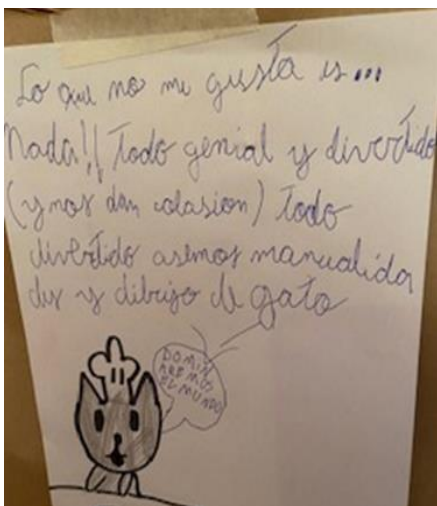 Lo que no me gusta es...
Nada!! Todo genial y divertido
(y nos dan colasion) Todo
divertido asemos manualida
des y dibujo de gato
DOMIN
AREMOS
EL MUNDO